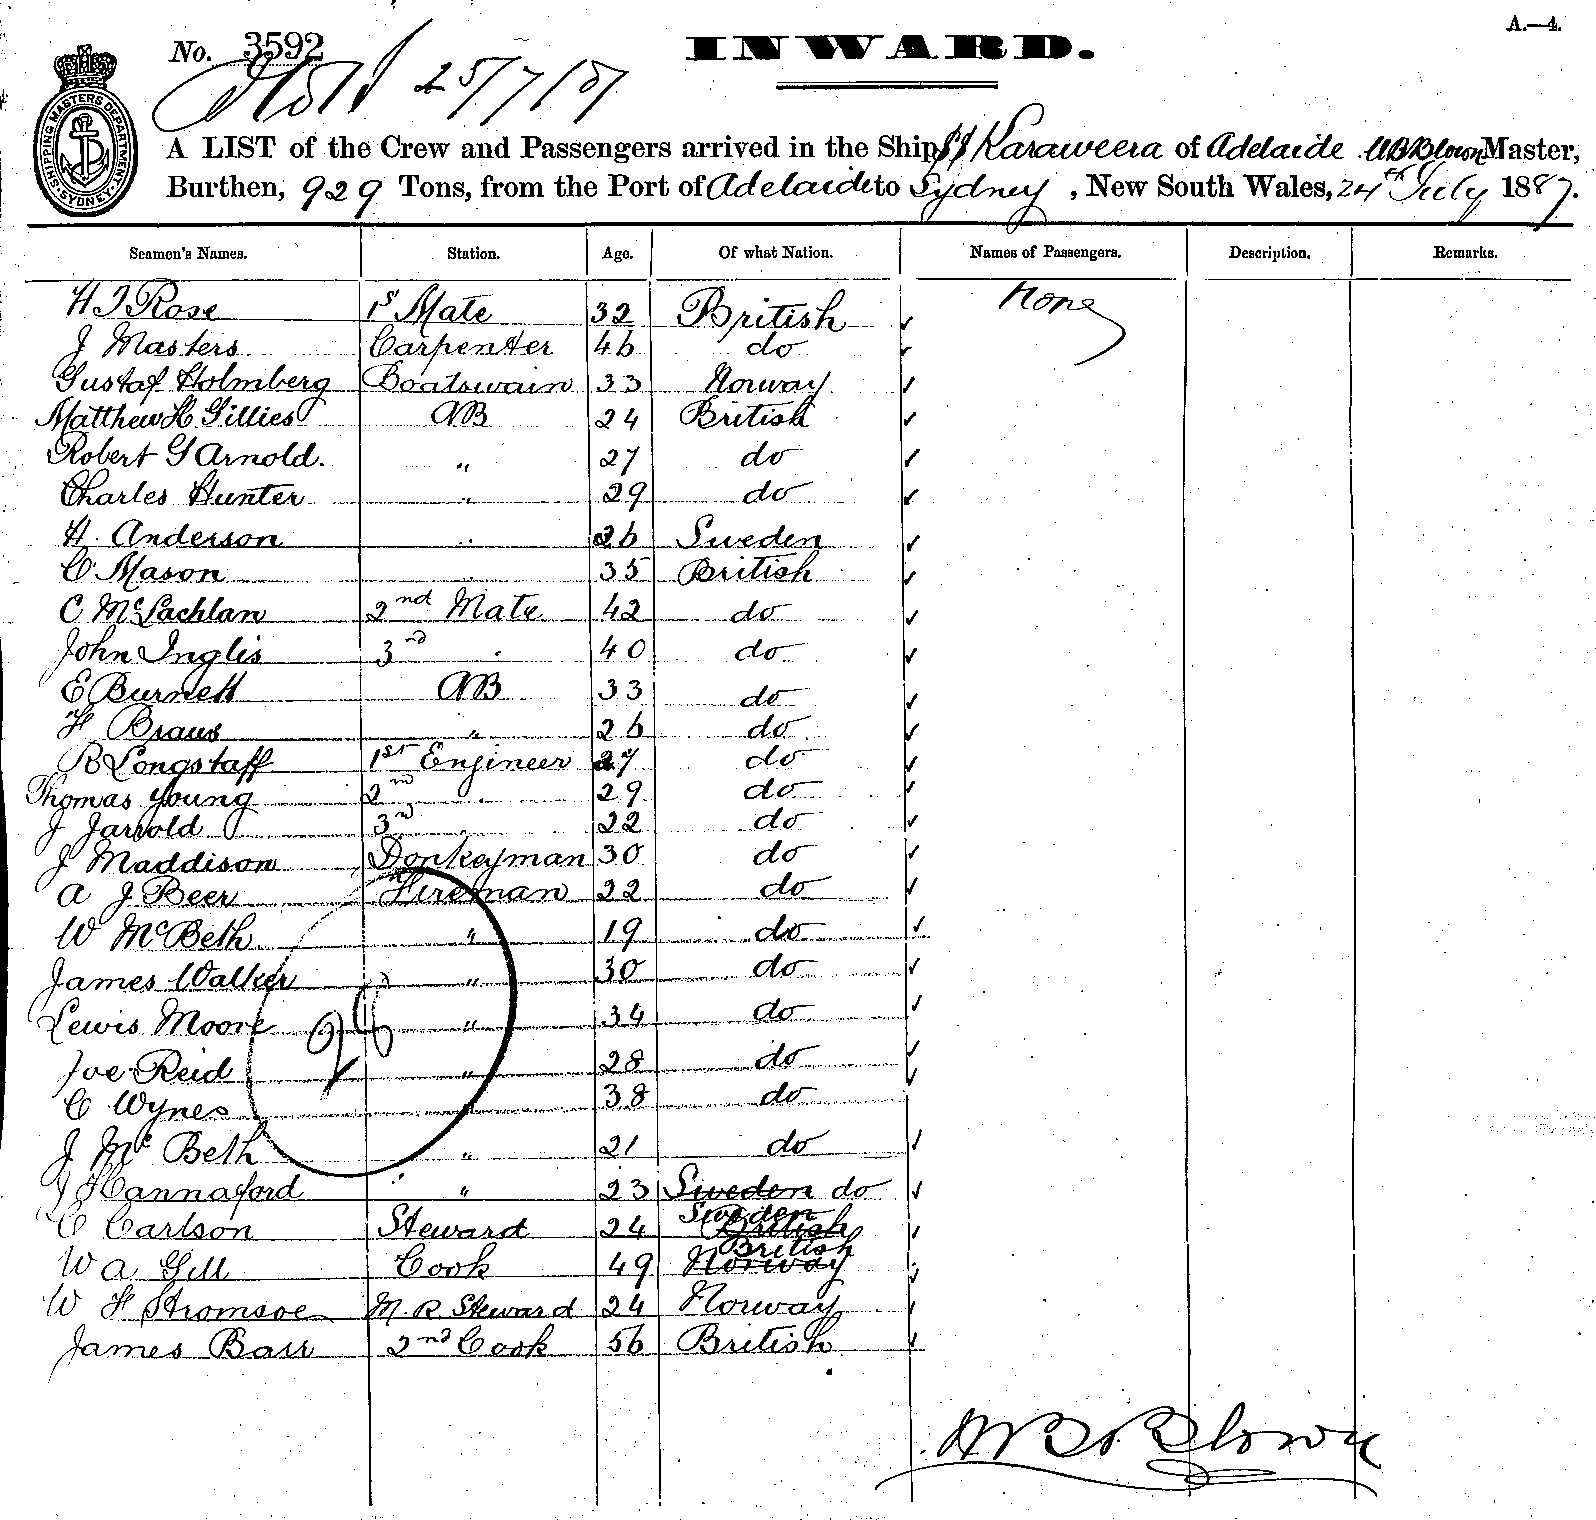 A.—4.
No. 3592
INWARD.
25/7/87
SHIPPING MASTERS DEPARTMENT SYDNEY
A LIST of the Crew and Passengers arrived in the Ship SS Karaweera of Adelaide W B Blown Master,
Burthen, 929 Tons, from the Port of Adelaide to Sydney, New South Wales, 24th July 1887.
Seamen's Names. Station. Age. Of what Nation. Names of Passengers. Description. Remarks.
H J Rose 1st Mate 32 British None
J Masters Carpenter 46 do
Gustaf Holmberg Boatswain 33 Norway
Matthew H Gillies AB 24 British
Robert G Arnold. " 27 do
Charles Hunter " 29 do
H. Anderson " 26 Sweden
C Mason " 35 British
C McLachlan 2nd Mate 42 do
John Inglis 3rd " 40 do
E Burnett AB 33 do
H Braus " 26 do
R Longstaff 1st Engineer 27 do
Thomas Young 2nd " 29 do
J Jarrold 3rd " 22 do
J Maddison Donkeyman 30 do
A J Beer Fireman 22 do
W McBeth " 19 do
James Walker " 30 do
Lewis Moore " 34 do
Joe Reid " 28 do
C Wynes " 38 do
J McBeth " 21 do
J Hannaford " 23 Sweden do
C Carlson Steward 24 Sweden British
W A Gill Cook 49 British Norway
W F Stromsoe M. R. Steward 24 Norway
James Barr 2nd Cook 56 British
W B Blown